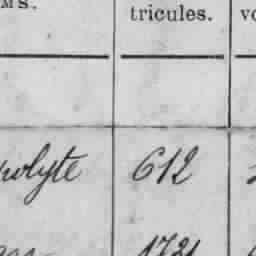 MS.
tricules.
vo
polyte 612
1721